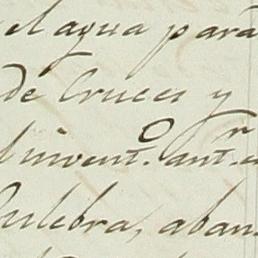 el agua para
de Cruces y
invent.º ant.r
Culebra, aban